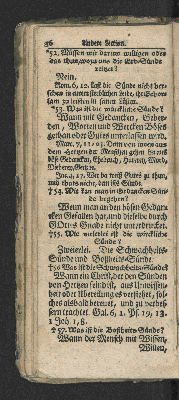 36 Andere Section.
*52. Müssen wir darum willigen oder
das thun, wozu uns die Erb-Sünde
reitzet?
Nein.
Rom. 6, 12. Last die Sünde nicht herr-
schen in eurem sterblichen Leibe, ihr Gehor-
sam zu leisten in seinen Lüsten.
*53. Was ist die würckliche Sünde?
Wann mit Gedancken, Geber-
den, Worten und Wercken Böses
gethan oder Gutes unterlassen wird.
Matt. 15, 19. Denn von innen aus
dem Hertzen der Menschen gehn heraus
böse Gedancken, Ehebruch, Hurerey, Mord,
Dieberey, Geitz.
Jac. 4, 17. Wer da weiß Gutes zu thun,
und thuts nicht, dem ists Sünde.
*54. Wie kan man in Gedancken Sün-
de begehen?
Wenn man an den bösen Gedan-
cken Gefallen hat, und dieselbe durch
GOttes Gnade nicht unterdrücket.
*55. Wie vielerley ist die würckliche
Sünde?
Zweyerley. Die Schwachheits-
Sünde und Boßheits-Sünde.
*56 Was ist die Schwachheits-Sünde?
Wann ein Christ, der den Sünden
von Hertzen feind ist, aus Unwissen-
heit oder Übereilung es versiehet, sol-
ches alsbald bereuet, und zu verbes-
sern trachtet. Gal. 6, 1. Ps. 19, 13.
1 Joh 1, 8.
*57. Was ist die Boßheits-Sünde?
Wann der Mensch mit Wissen,
Willen,